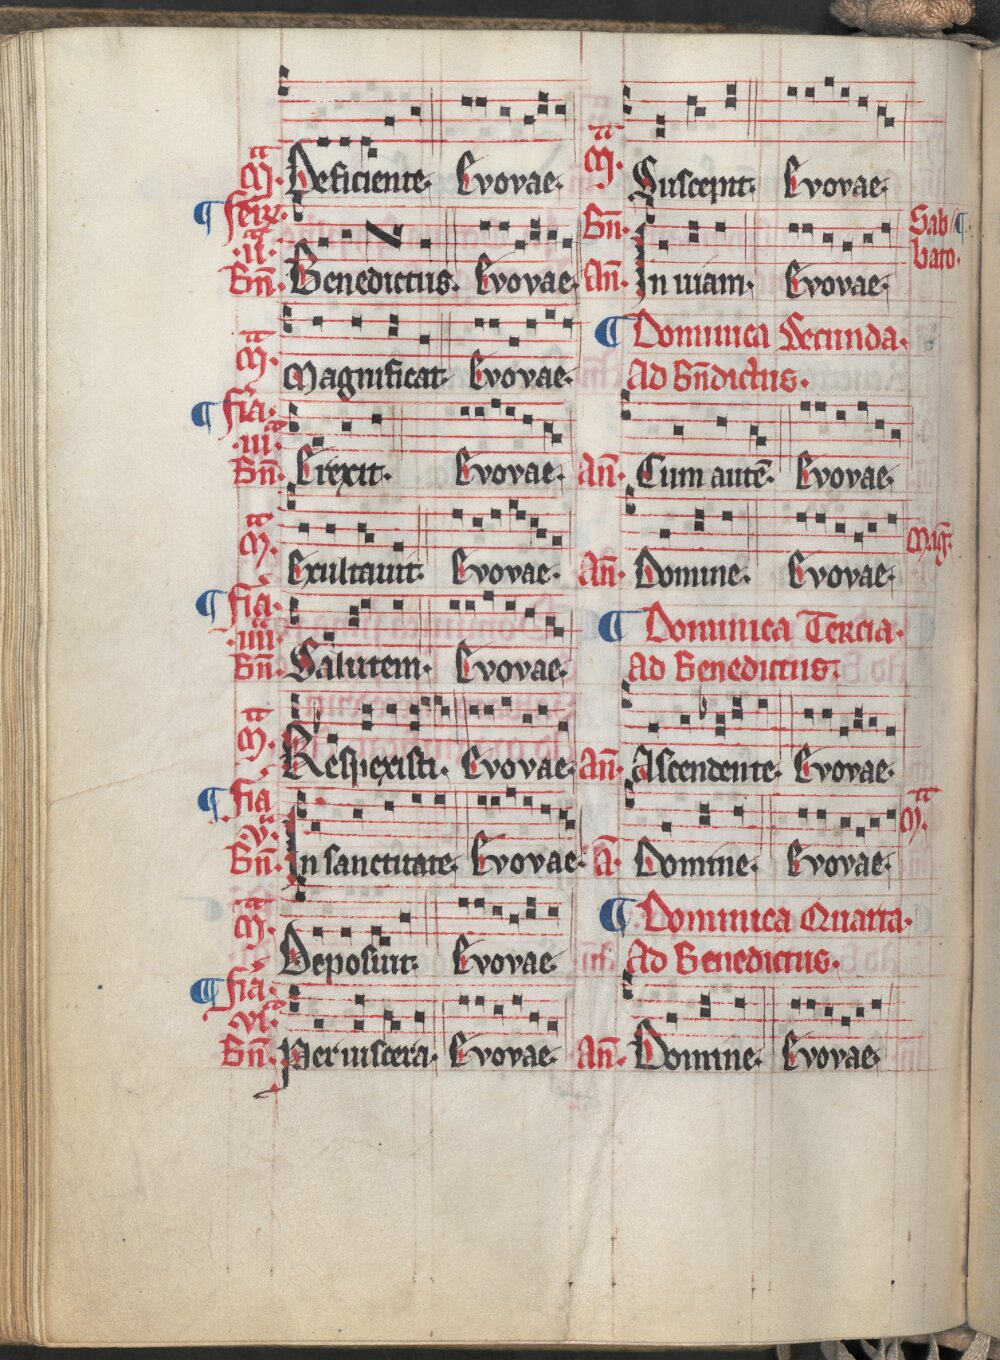 m̄ᵃ. Deficiente. Evovae.
¶ feriᵃ. ij.ᵃ
Bn̄. Benedictus. Evovae.
m̄ᵃ. Magnificat. Evovae.
¶ fia. iij.ᵃ
Bn̄. Erexit. Evovae.
m̄ᵃ. Exultauit. Evovae.
¶ fia. iiij.
Bn̄. Salutem. Evovae.
m̄ᵃ. Respexisti. Evovae.
¶ fia v.ᵃ
Bn̄. In sanctitate. Evovae.
m̄ᵃ. Deposuit. Evovae.
¶ fia. vi.ᵃ
Bn̄. Per uiscera. Evovae.
m̄ᵃ. Suscepit. Evovae.
Bn̄. Sabbato. ¶
An̄. In uiam. Evovae.
¶ Dominica Secunda.
Ad Bn̄dictus.
An̄. Cum autē. Evovae.
Maḡ.
An̄. Domine. Evovae.
¶ Dominica Tercia.
Ad Benedictus.
An̄. Ascendente. Evovae.
m̄ᵃ.
Ā. Domine. Evovae.
¶ Dominica Quarta.
Ad Benedictus.
An̄. Domine. Evovae.